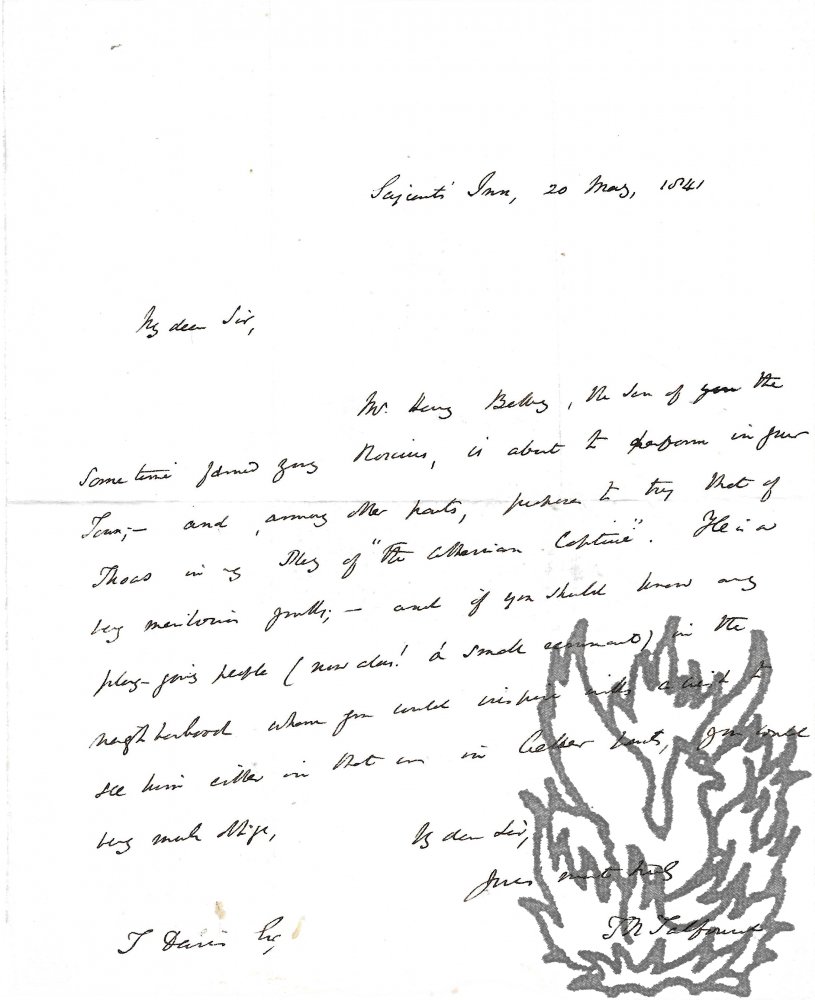 Serjeants' Inn, 20 May, 1841
My dear Sir,
Mr. Henry Betty, the son of you the
some time famed young Roscius, is about to perform in your
Town; – and, among other parts, proposes to try that of
Thoas in my Play of "the Athenian Captive". He is a
very meritorious youth; – and if you should know any
play-going people (now alas! a small) in the
neighborhood whom you could inspire with a wish to
see him either in that or in better parts, you would
very much oblige,
My dear Sir,
Yours most truly
T N Talfourd
T Davis Esq,